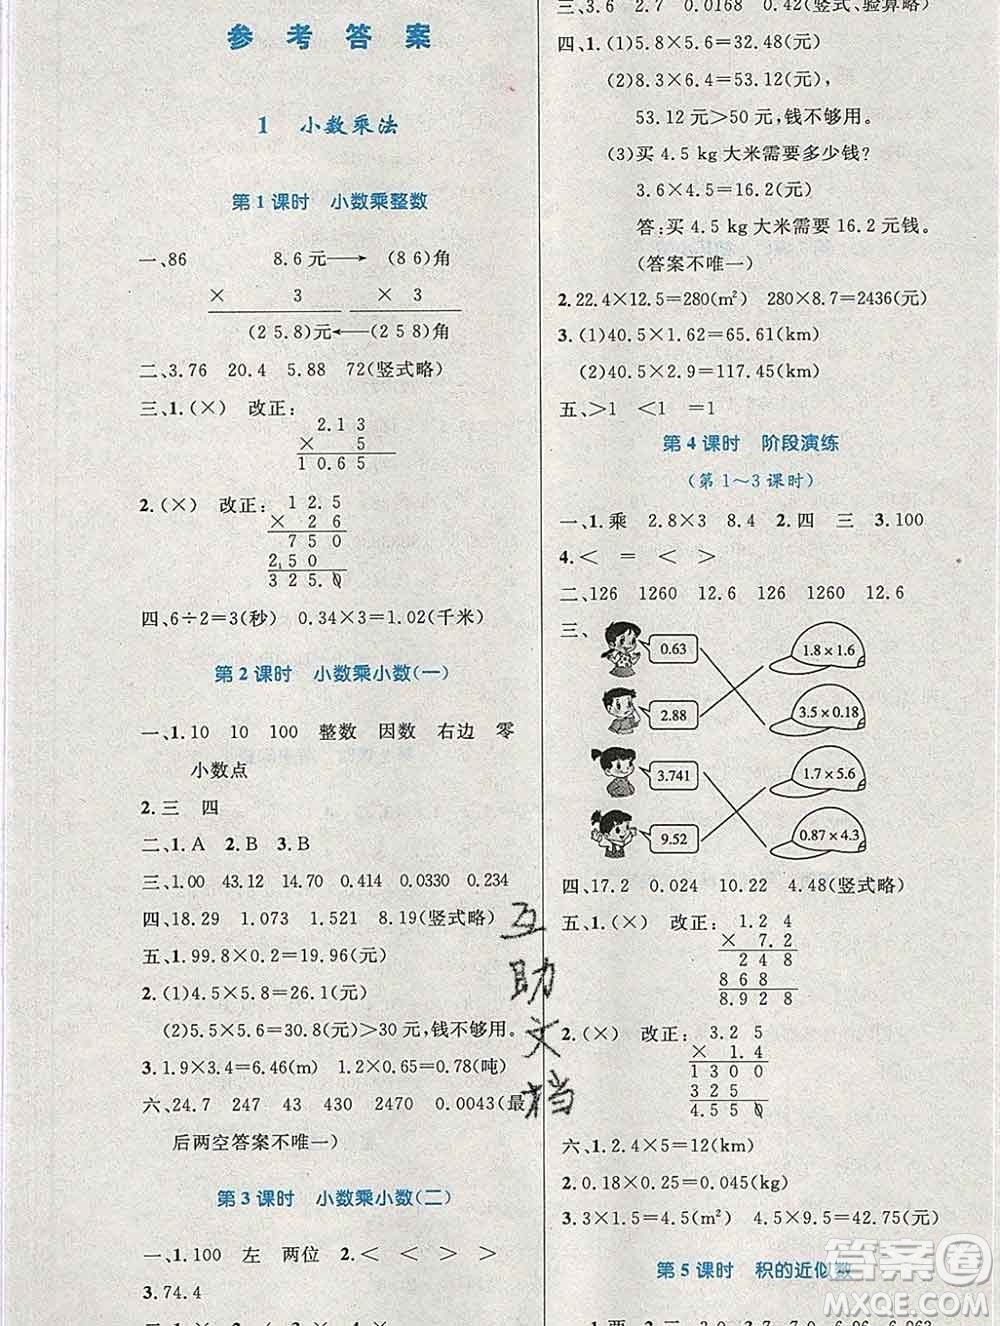 参考答案
1 小数乘法
第1课时 小数乘整数
一、86 8.6元→(86)角
× 3 × 3
(25.8)元←(258)角
二、3.76 20.4 5.88 72(竖式略)
三、1.(×) 改正:
2.13
× 5
10.65
2.(×) 改正: 12.5
× 26
750
250
325.0
四、6÷2=3(秒) 0.34×3=1.02(千米)
第2课时 小数乘小数(一)
一、1.10 10 100 整数 因数 右边 零
小数点
2.三 四
二、1.A 2.B 3.B
三、1.00 43.12 14.70 0.414 0.0330 0.234
四、18.29 1.073 1.521 8.19(竖式略)
五、1.99.8×0.2=19.96(元)
2.(1)4.5×5.8=26.1(元)
(2)5.5×5.6=30.8(元)>30元,钱不够用。
3.1.9×3.4=6.46(m) 1.2×0.65=0.78(吨)
六、24.7 247 43 430 2470 0.0043(最
后两空答案不唯一)
第3课时 小数乘小数(二)
一、1.100 左 两位 2.< < > >
3.74.4
三、3.6 2.7 0.0168 0.42(竖式、验算略)
四、1.(1)5.8×5.6=32.48(元)
(2)8.3×6.4=53.12(元),
53.12元>50元,钱不够用。
(3)买4.5 kg大米需要多少钱?
3.6×4.5=16.2(元)
答:买4.5 kg大米需要16.2元钱。
(答案不唯一)
2.22.4×12.5=280(m²) 280×8.7=2436(元)
3.(1)40.5×1.62=65.61(km)
(2)40.5×2.9=117.45(km)
五、>1 <1 =1
第4课时 阶段演练
(第1~3课时)
一、1.乘 2.8×3 8.4 2.四 三 3.100
4.< = < >
二、126 1260 12.6 126 1260 12.6
三、
0.63 1.8×1.6
2.88 3.5×0.18
3.741 1.7×5.6
9.52 0.87×4.3
四、17.2 0.024 10.22 4.48(竖式略)
五、1.(×) 改正: 1.24
× 7.2
248
868
8.928
2.(×) 改正: 3.25
× 1.4
1300
325
4.550
六、1.2.4×5=12(km)
2.0.18×0.25=0.045(kg)
3.3×1.5=4.5(m²) 4.5×9.5=42.75(元)
第5课时 积的近似数
互
助
文
档
答案圈
MXQE.COM